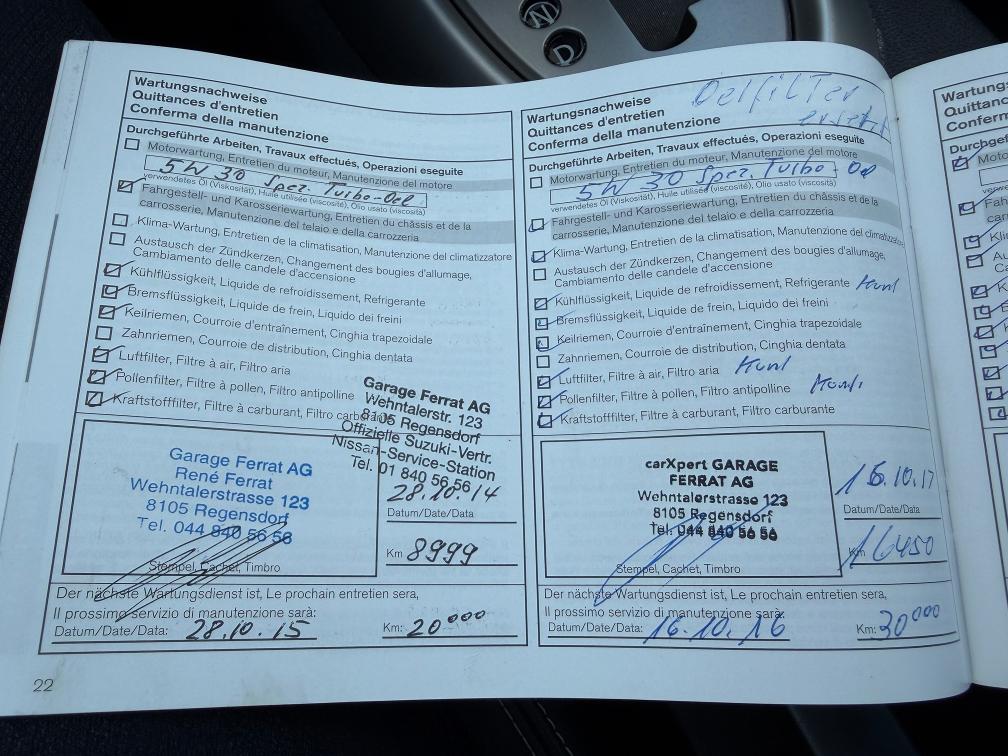 N
D
Wartungsnachweise
Quittances d'entretien
Conferma della manutenzione
Durchgeführte Arbeiten, Travaux effectués, Operazioni eseguite
Motorwartung, Entretien du moteur, Manutenzione del motore
5W 30 Spez. Turbo-Oel
verwendetes Öl (Viskosität), Huile utilisée (viscosité), Olio usato (viscosità)
Fahrgestell- und Karosseriewartung, Entretien du châssis et de la
carrosserie, Manutenzione del telaio e della carrozzeria
Klima-Wartung, Entretien de la climatisation, Manutenzione del climatizzatore
Austausch der Zündkerzen, Changement des bougies d'allumage,
Cambiamento delle candele d'accensione
Kühlflüssigkeit, Liquide de refroidissement, Refrigerante
Bremsflüssigkeit, Liquide de frein, Liquido dei freini
Keilriemen, Courroie d'entraînement, Cinghia trapezoidale
Zahnriemen, Courroie de distribution, Cinghia dentata
Luftfilter, Filtre à air, Filtro aria
Pollenfilter, Filtre à pollen, Filtro antipolline
Kraftstofffilter, Filtre à carburant, Filtro
Garage Ferrat AG
Wehntalerstr. 123
8105 Regensdorf
Offizielle Suzuki-Vertr.
Nissan-Service-Station
Tel. 01 840 56 56
Garage Ferrat AG
René Ferrat
Wehntalerstrasse 123
8105 Regensdorf
Tel. 044 840 56 56
Stempel, Cachet, Timbro
28.10.14
Datum/Date/Data
Km 8999
Der nächste Wartungsdienst ist, Le prochain entretien sera,
Il prossimo servizio di manutenzione sarà:
Datum/Date/Data: 28.10.15 Km: 20000
22
Oelfilter
ersetzt
Wartungsnachweise
Quittances d'entretien
Conferma della manutenzione
Durchgeführte Arbeiten, Travaux effectués, Operazioni eseguite
Motorwartung, Entretien du moteur, Manutenzione del motore
5W 30 Spez. Turbo-Oel
verwendetes Öl (Viskosität), Huile utilisée (viscosité), Olio usato (viscosità)
Fahrgestell- und Karosseriewartung, Entretien du châssis et de la
carrosserie, Manutenzione del telaio e della carrozzeria
Klima-Wartung, Entretien de la climatisation, Manutenzione del climatizzatore
Austausch der Zündkerzen, Changement des bougies d'allumage,
Cambiamento delle candele d'accensione
Kühlflüssigkeit, Liquide de refroidissement, Refrigerante
Bremsflüssigkeit, Liquide de frein, Liquido dei freini
Keilriemen, Courroie d'entraînement, Cinghia trapezoidale
Zahnriemen, Courroie de distribution, Cinghia dentata
Luftfilter, Filtre à air, Filtro aria
Pollenfilter, Filtre à pollen, Filtro antipolline
Kraftstofffilter, Filtre à carburant, Filtro carburante
carXpert GARAGE
FERRAT AG
Wehntalerstrasse 123
8105 Regensdorf
Tel. 044 840 56 56
Stempel, Cachet, Timbro
Datum/Date/Data
Km 16450
Der nächste Wartungsdienst ist, Le prochain entretien sera,
Il prossimo servizio di manutenzione sarà:
Datum/Date/Data: 16.10.16 Km: 30000